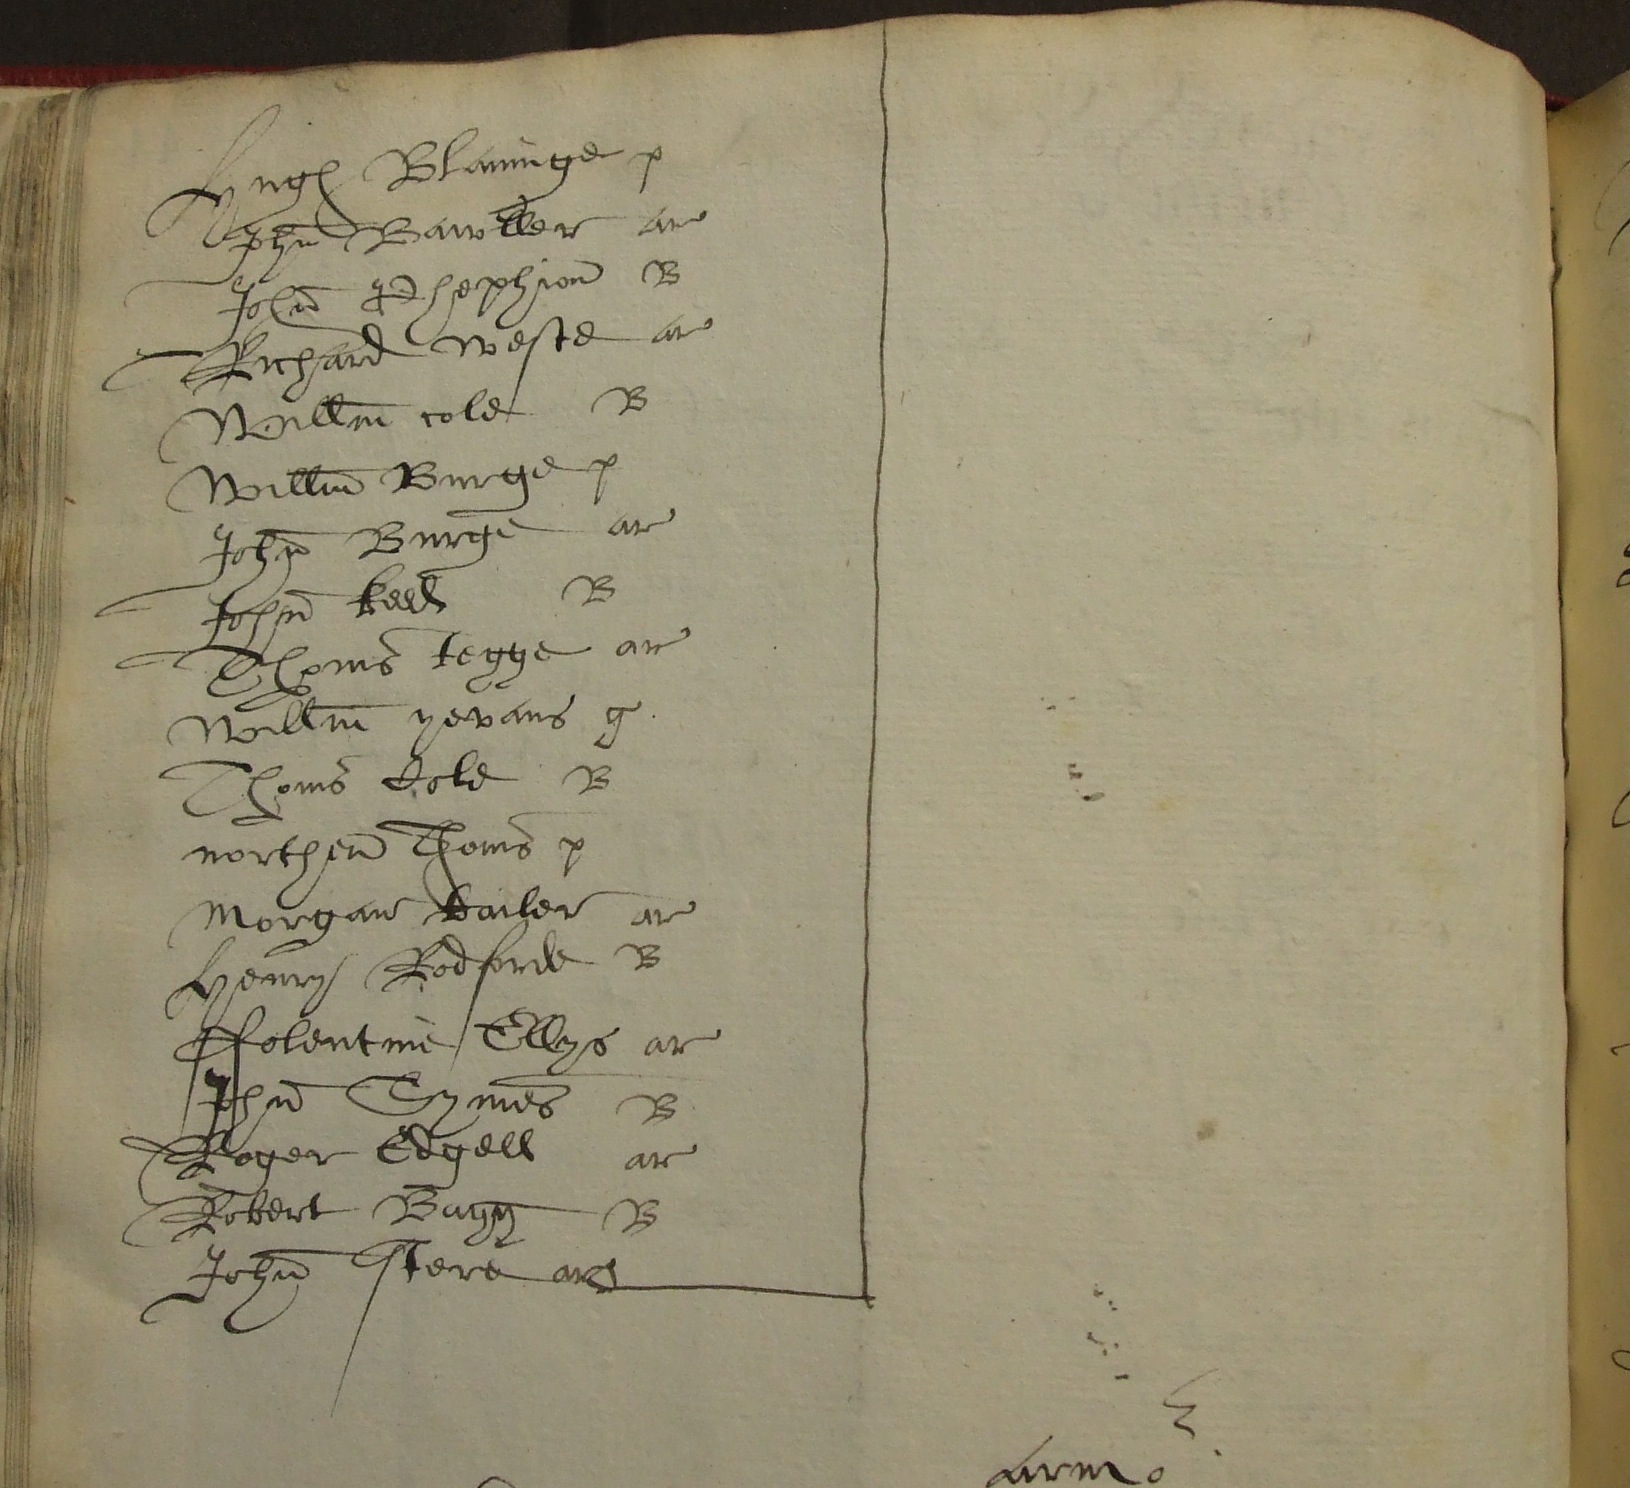 Hugh Blaninge p
John Bawller ar
John B
Richard weste ar
Willm cole B
Willm Burge p
John Burge ar
John kell B
Thoms tegge ar
Willm yevans g
Thoms Cole B
northen Thoms p
Morgan bailer ar
Henry Rodforde B
ffolentine Ellys ar
John Symes B
Roger Edgell ar
Robert Bagg B
John stere ar
arm